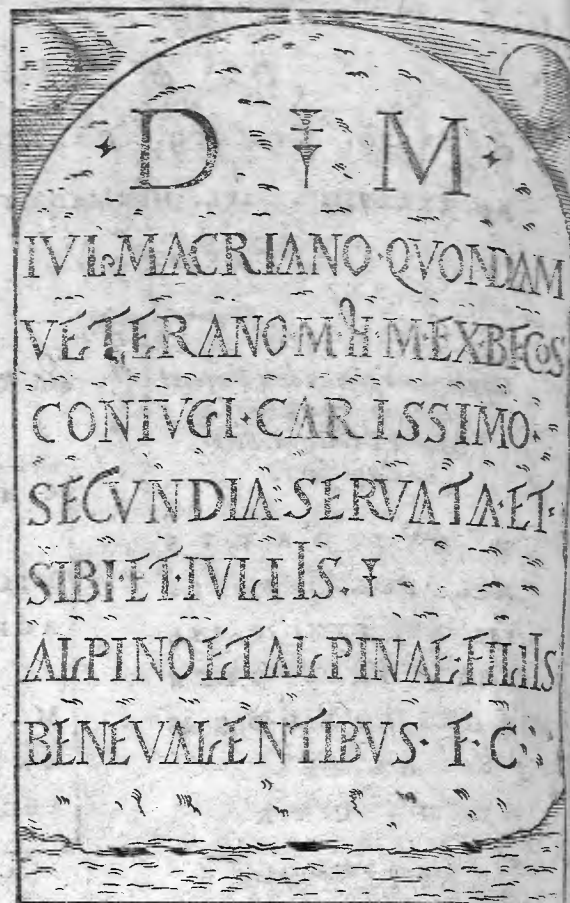 D M
IVL·MACRIANO·QVONDAM
VETERANO·M H M·EX·BF COS
CONIVGI·CARISSIMO·
SECVNDIA·SERVATA·ET·
SIBI·ET·IVLIIS·
ALPINO ET ALPINAE·FILIIS
BENEVALENTIBVS· F·C·